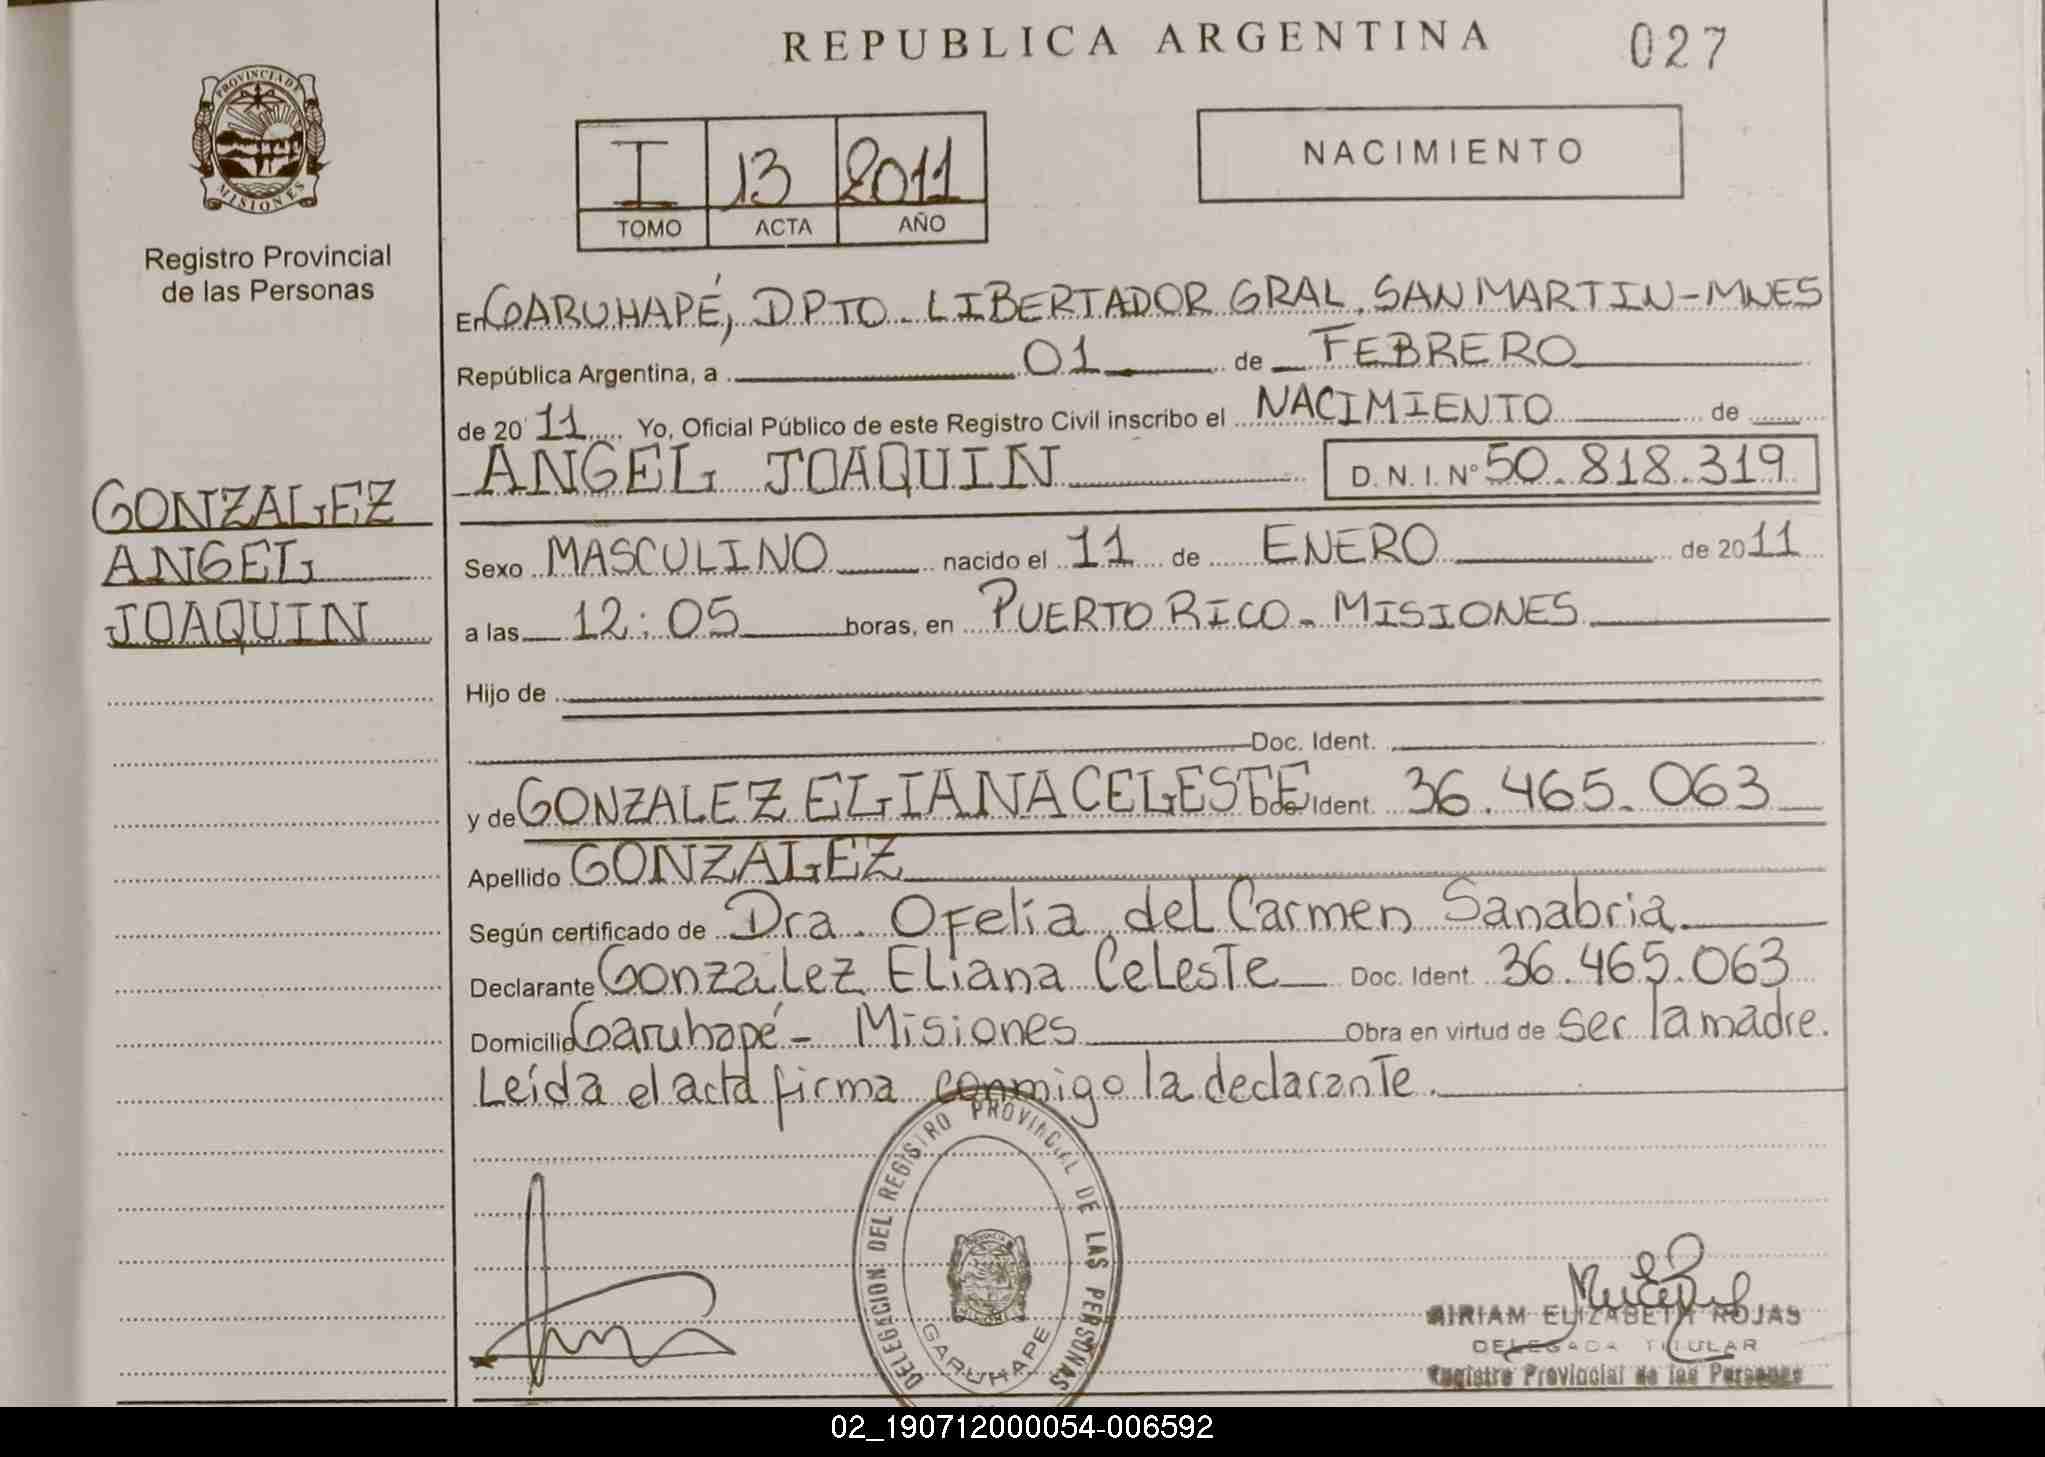 REPUBLICA ARGENTINA
027
PROVINCIA DE MISIONES
Registro Provincial
de las Personas
I 13 2011
TOMO ACTA AÑO
NACIMIENTO
En GARUHAPÉ, DPTO. LIBERTADOR GRAL. SAN MARTIN-MNES
República Argentina, a 01 de FEBRERO
de 2011 Yo, Oficial Público de este Registro Civil inscribo el NACIMIENTO de
ANGEL JOAQUIN D.N.I.Nº 50.818.319
GONZALEZ
ANGEL
JOAQUIN
Sexo MASCULINO nacido el 11 de ENERO de 2011
a las 12:05 horas, en PUERTO RICO - MISIONES
Hijo de
Doc. Ident.
y de GONZALEZ ELIANA CELESTE Doc. Ident. 36.465.063
Apellido GONZALEZ
Según certificado de Dra. Ofelia del Carmen Sanabria
Declarante Gonzalez Eliana Celeste Doc. Ident. 36.465.063
Domicilio Garuhapé - Misiones Obra en virtud de ser la madre.
Leída el acta firma conmigo la declarante.
DELEGACION DEL REGISTRO PROVINCIAL DE LAS PERSONAS
GARUHAPE
MIRIAM ELIZABETH ROJAS
DELEGADA TITULAR
Registro Provincial de las Personas
02_190712000054-006592